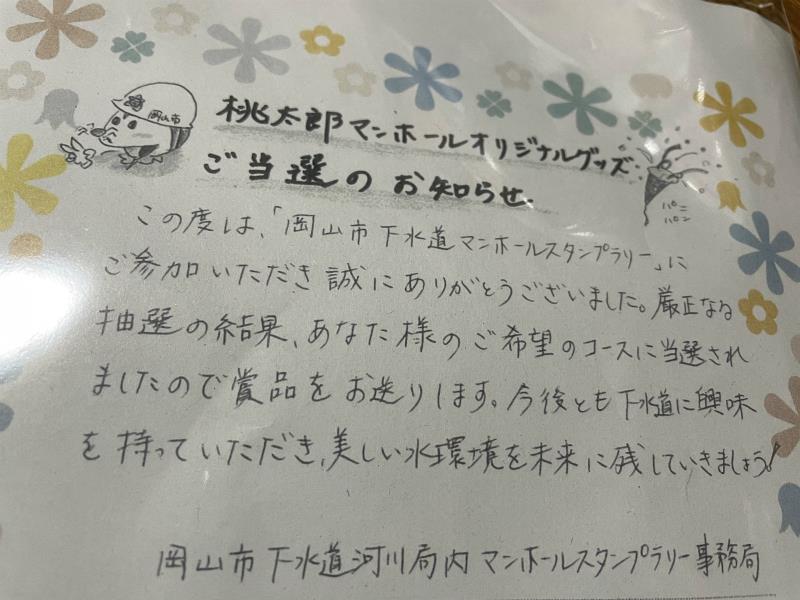 岡山市
桃太郎マンホールオリジナルグッズ
ご当選のお知らせ.
パーン
パン
この度は、「岡山市下水道マンホールスタンプラリー」に
ご参加いただき誠にありがとうございました。厳正なる
抽選の結果、あなた様のご希望のコースに当選され
ましたので賞品をお送りします。今後とも下水道に興味
を持っていただき、美しい水環境を未来に残していきましょう♪
岡山市下水道河川局内 マンホールスタンプラリー事務局